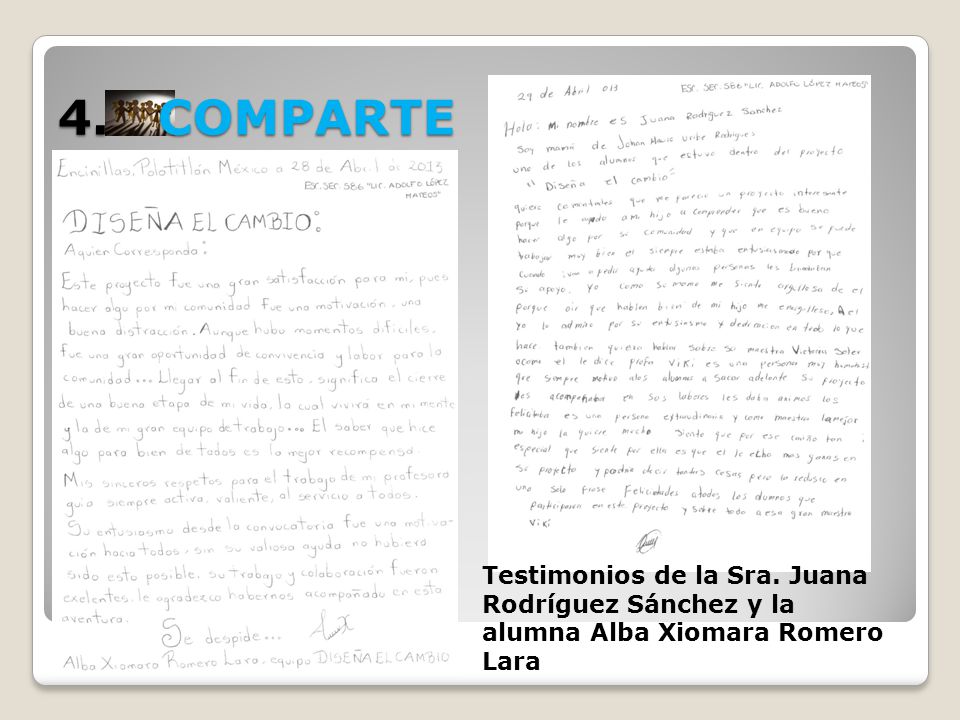 4. COMPARTE
Encinillas, Polotitlán México a 28 de Abril de 2013
ESC. SEC. 586 "LIC. ADOLFO LÓPEZ
MATEOS"
DISEÑA EL CAMBIO:
A quien Corresponda:
Este proyecto fue una gran satisfacción para mi, pues
hacer algo por mi comunidad fue una motivación, una
buena distracción. Aunque hubo momentos dificiles,
fue una gran oportunidad de convivencia y labor para la
comunidad... Llegar al fin de esto, significa el cierre
de una buena etapa de mi vida, la cual vivirá en mi mente
y la de mi gran equipo de trabajo... El saber que hice
algo para bien de todos es la mejor recompensa.
Mis sinceros respetos para el trabajo de mi profesora
guia siempre activa, valiente, al servicio a todos.
Su entusiasmo desde la convocatoria fue una motiva-
ción hacia todos, sin su valiosa ayuda no hubiera
sido esto posible, su trabajo y colaboración fueron
exelentes, le agradezco habernos acompañado en esta
aventura.
Se despide...
Alba Xiomara Romero Lara, equipo DISEÑA EL CAMBIO
29 de Abril 013
ESC. SEC. 586 "LIC. ADOLFO LÓPEZ MATEOS"
Hola: Mi nombre es Juana Rodriguez Sanchez
Soy mamá de Uribe Rodriguez
uno de los alumnos que estuvo dentro del proyecto
"Diseña el cambio"
quiero comentarles que me parecio un proyecto interesante
porque le ayudo a mi hijo a comprender que es bueno
hacer algo por su comunidad y que en equipo se puede
trabajar muy bien el siempre estaba entusiasmado por que
cuando ivan a pedir ayuda algunas personas les brindaban
su apoyo, yo como su mama me siento orgullosa de el
porque oir que hablen bien de mi hijo me enorgullese, A el
yo lo admiro por su entusiasmo y dedicacion en todo lo que
hace tambien quiero hablar sobre su maestra Victoria Soler
o como el le dice profa Viki es una persona muy
que siempre motivo alos alumnos a sacar adelante su proyecto
les acompañaba en sus labores les daba animos los
felicitaba es una persona extraudinaria y como maestra la mejor
mi hijo la quiere mucho siento que por ese cariño tan
especial que siente por ella es que el le echo mas ganas en
su proyecto y podria decir tantas cosas pero la reduسco en
una sola frase Felicidades atodos los alumnos que
participaron en este proyecto y sobre todo a esa gran maestra
Viki
Testimonios de la Sra. Juana
Rodríguez Sánchez y la
alumna Alba Xiomara Romero
Lara